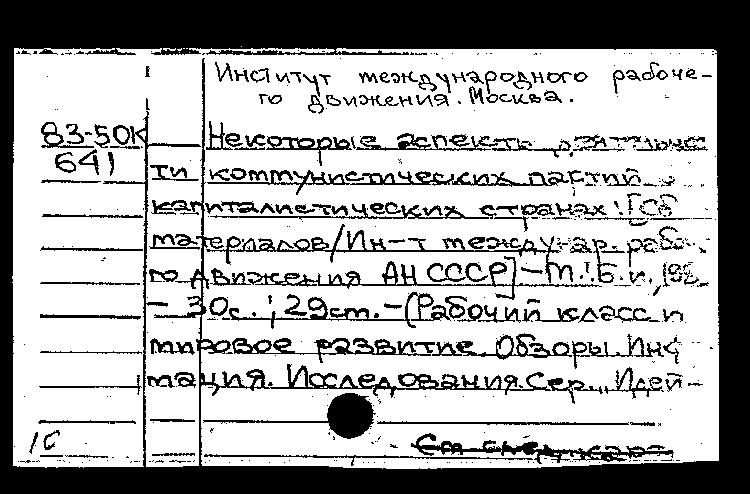 Институт международного рабоче-
го движения. Москва.
83-50K Некоторые аспекты деятельнос
641 ти коммунистических партий
капиталистических странах: [Сб
материалов/Ин-т междунар. рабо
го движения АН СССР] - М.: Б.и.,
- 30с.; 29см. - (Рабочий класс и
мировое развитие. Обзоры. Инф
мация. Исследования. Сер. „Идей-
1с
См след карт